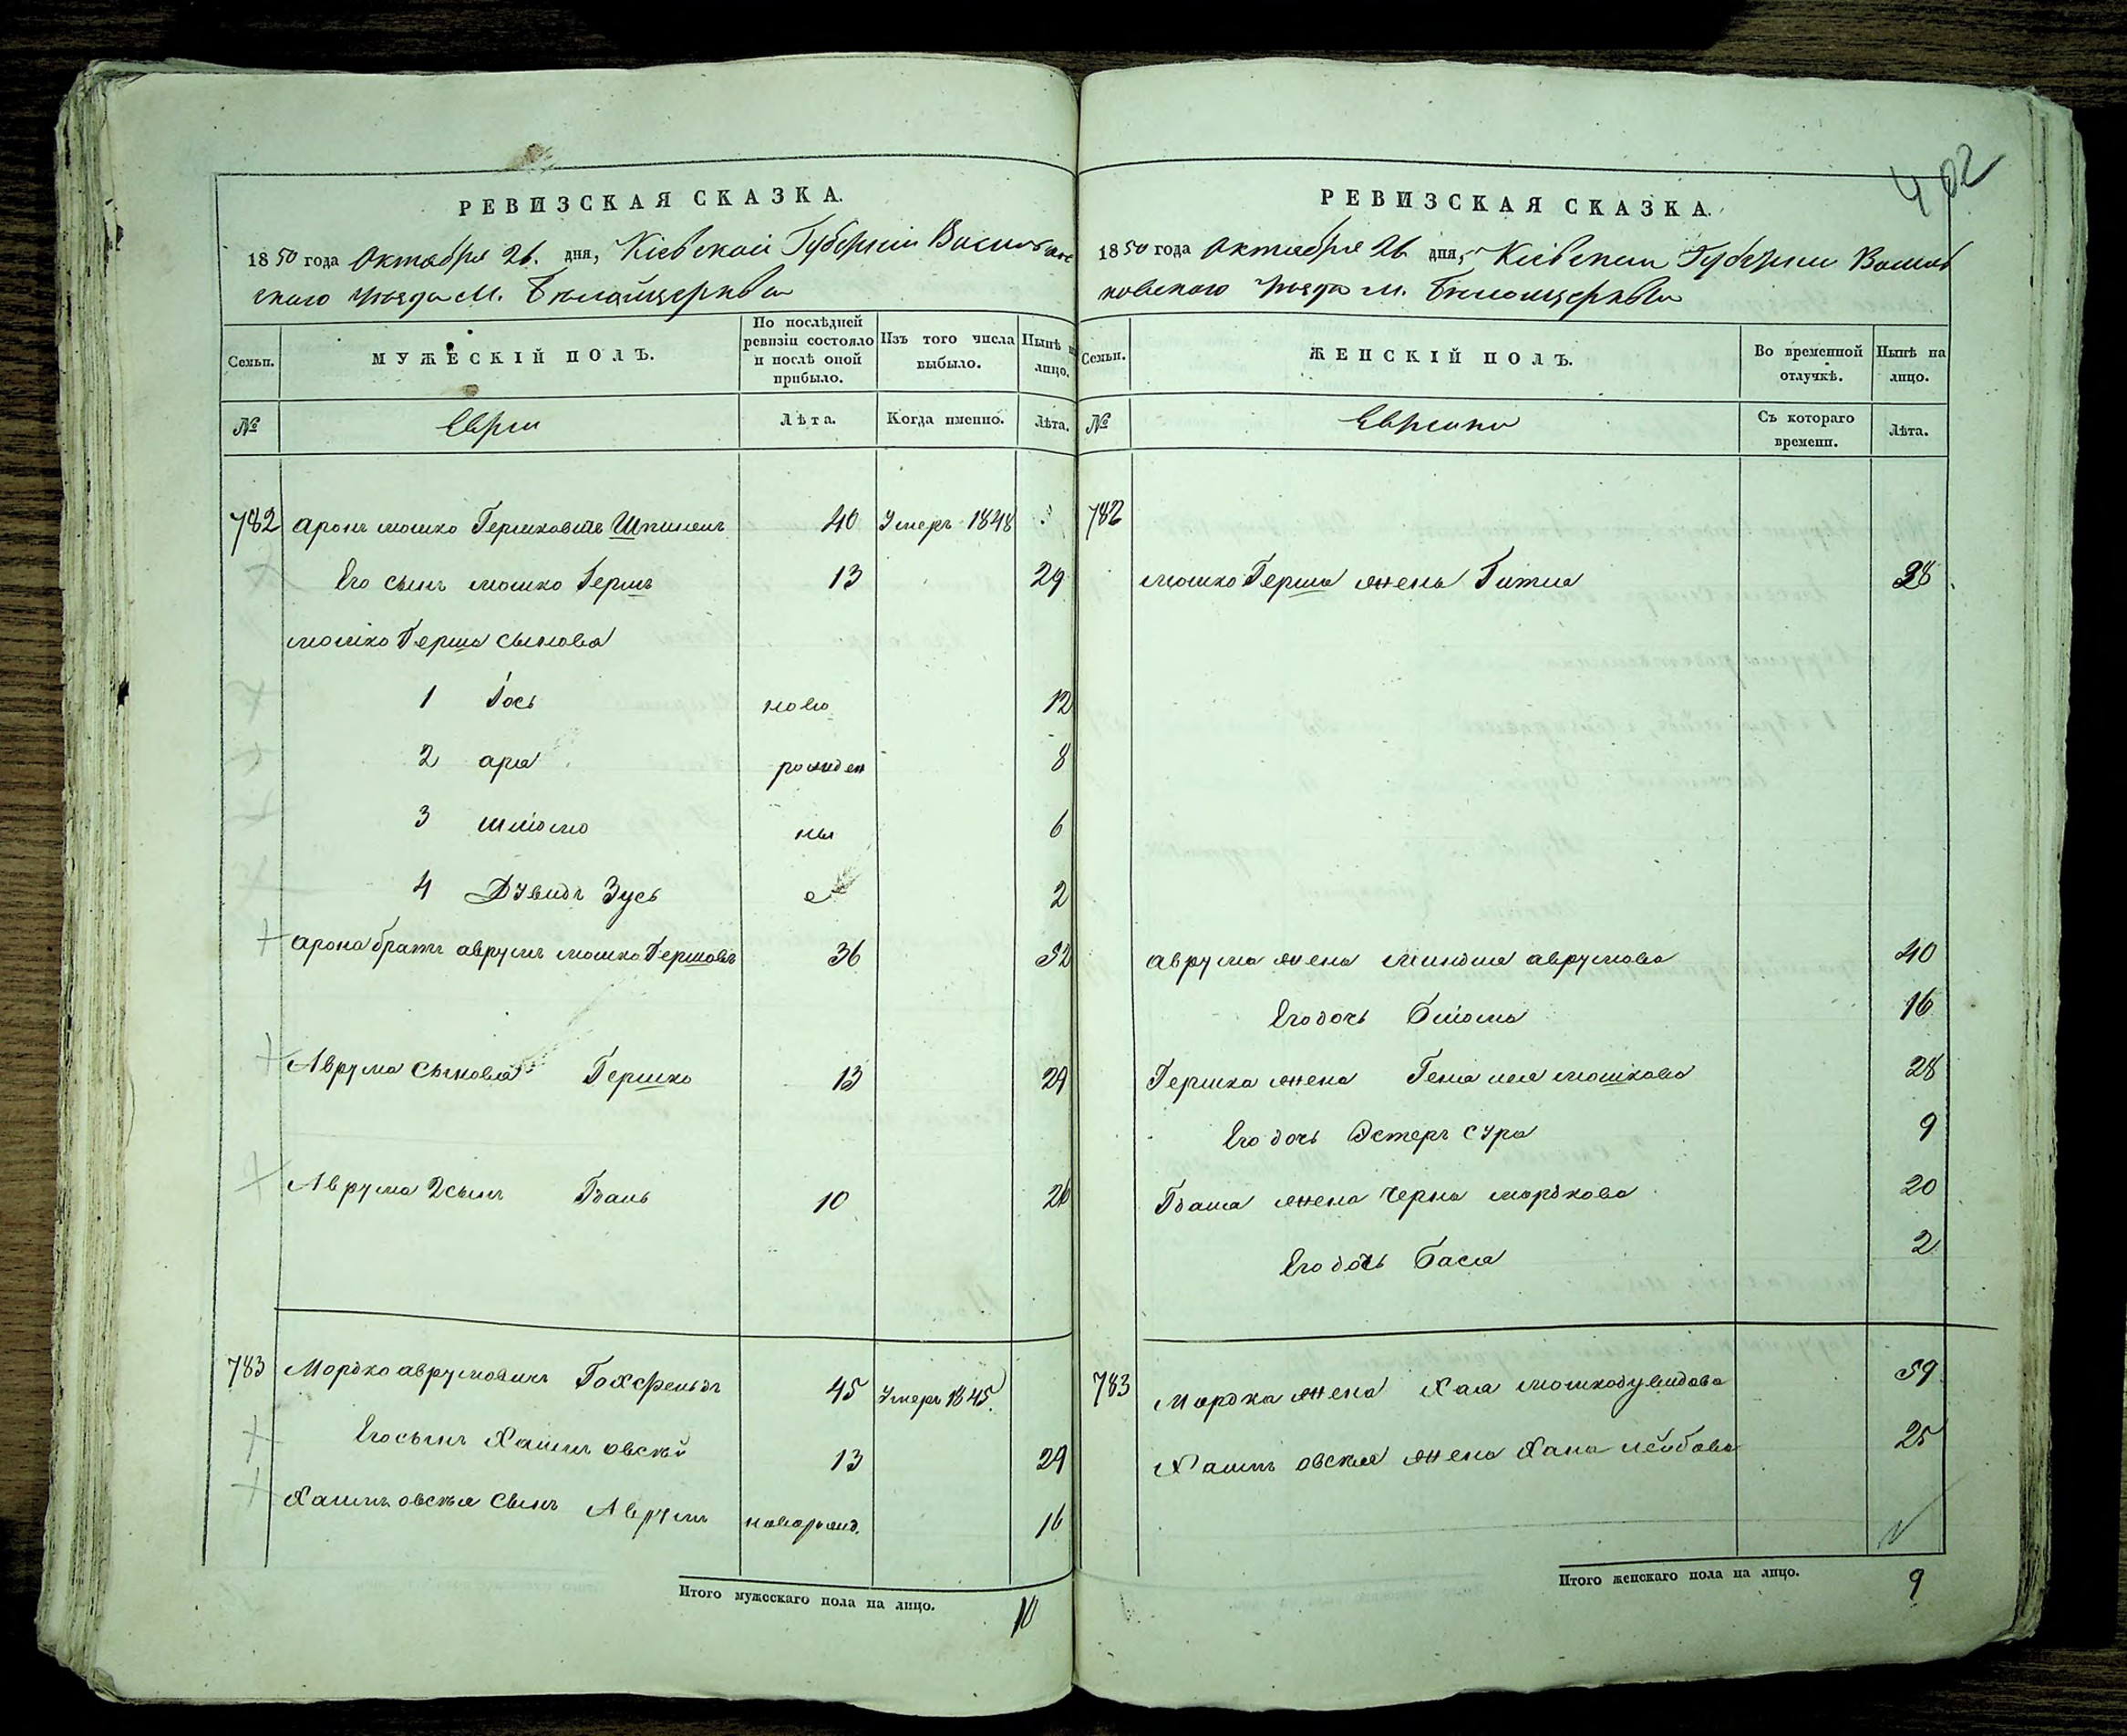 402
РЕВИЗСКАЯ СКАЗКА.
1850 года Октября 26. дня, Кіевской Губерніи Васильков
скаго уезда М. Белойцеркви
Семьи. МУЖЕСКІЙ ПОЛЪ. По послѣдней ревизіи состояло и послѣ оной прибыло. Изъ того числа выбыло. Нынѣ на лицо.
№ Евреи Лѣта. Когда именно. Лѣта.
782 Аронъ мошко Гершковичъ Шпилень 40 Умеръ 1848
Его сынъ мошко Гершъ 13 29
мошко Герша сыновья
1 Iось ново 12
2 аря рожден 8
3 шліомо ны 6
4 Дувидъ Зусь е 2
Арона братъ аврумъ мошко Гершовъ 36 52
Аврума сыновья Гершко 13 29
Аврума 2 сынъ 10 26
783 Мордко аврумовичъ 45 Умеръ 1845.
Его сынъ Хаимъ овсѣй 13 29
Хаимъ овсѣя сынъ Аврумъ новорожд. 16
Итого мужескаго пола на лицо. 10
РЕВИЗСКАЯ СКАЗКА.
1850 года Октября 26 дня, Кіевской Губерніи Василь
ковскаго уезда м. Белоицеркви
Семьи. ЖЕНСКІЙ ПОЛЪ. Во временной отлучкѣ. Нынѣ на лицо.
№ Еврейки Съ котораго времени. Лѣта.
782
мошко Герша жена Гитля 28
аврума жена аврумова 40
Его дочь 16
Гершка жена мошкова 28
Его дочь Эстеръ сура 9
жена Черна мордкова 20
Его дочь Бася 2
783 Мордка жена Хая мошкодувидова 59
Хаимъ овсѣя жена Хана лейбова 25
Итого женскаго пола на лицо. 9